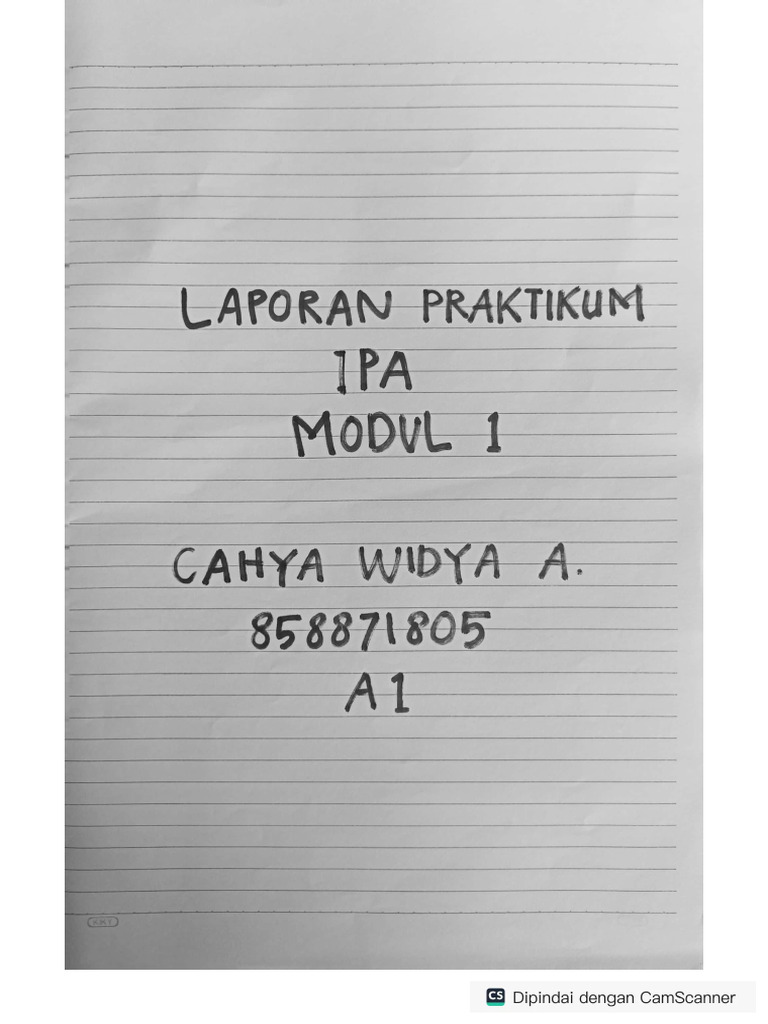 LAPORAN PRAKTIKUM
IPA
MODUL 1
CAHYA WIDYA A.
858871805
A1
KKY
CS Dipindai dengan CamScanner